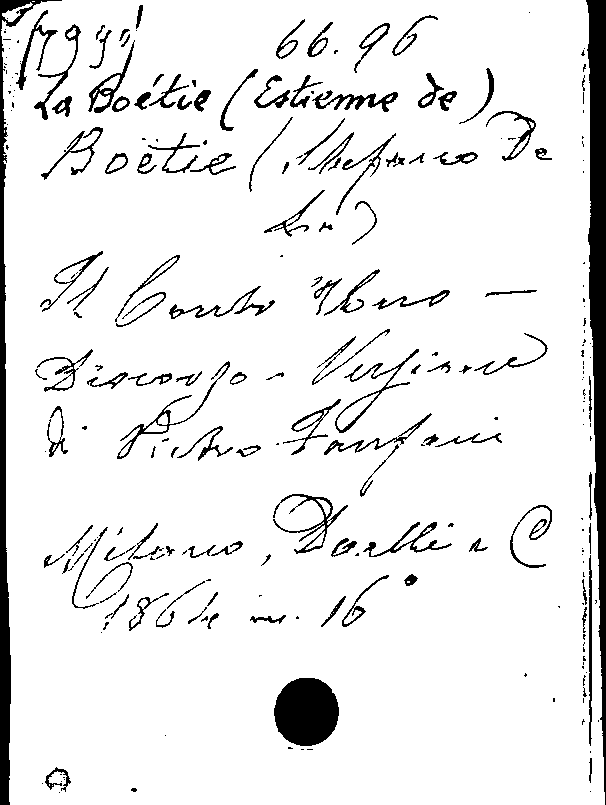 66.96
La Boétie (Estienne de)
Boëtie (Stefano De
La)
Il Contr'Uno —
Discorso - Versione
di Pietro Fanfani
Milano, Daelli e C
1864 in. 16°